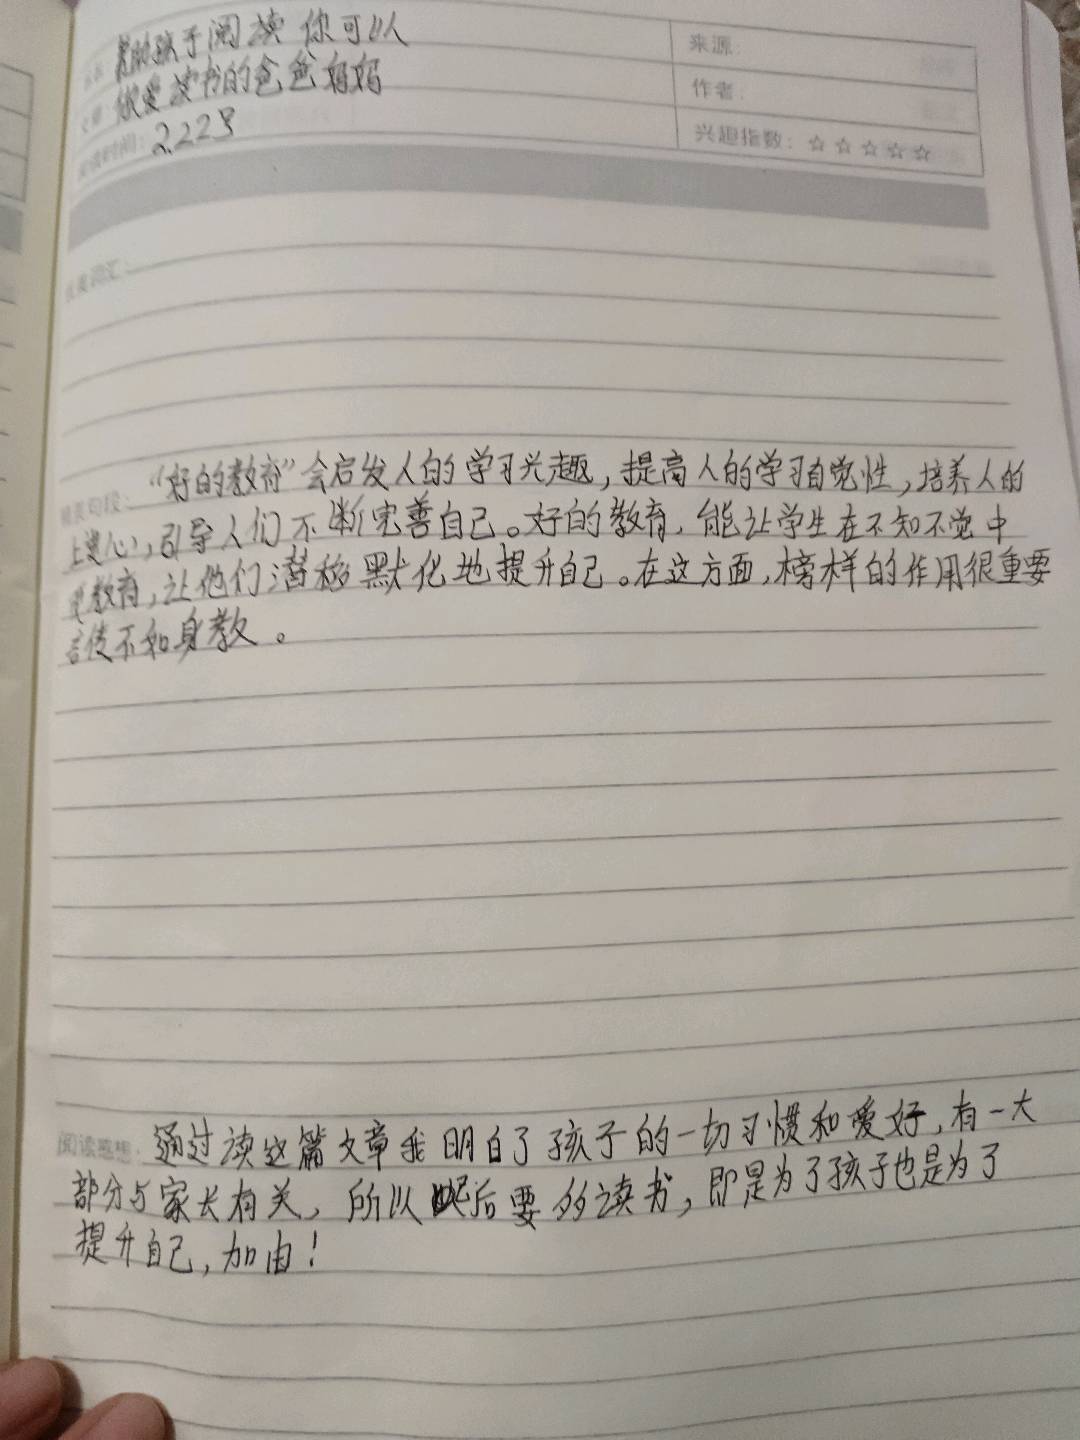 帮助孩子阅读 你可以
来源:
做爱读书的爸爸妈妈
作者:
阅读时间: 2.22号
兴趣指数: ☆☆☆☆☆
优美词汇:
精美句段: “好的教育”会启发人的学习兴趣,提高人的学习自觉性,培养人的
上进心,引导人们不断完善自己。好的教育,能让学生在不知不觉中
受教育,让他们潜移默化地提升自己。在这方面,榜样的作用很重要
言传不如身教。
阅读感想: 通过读这篇文章我明白了孩子的一切习惯和爱好,有一大
部分与家长有关, 所以 后要多读书,即是为了孩子也是为了
提升自己,加由!